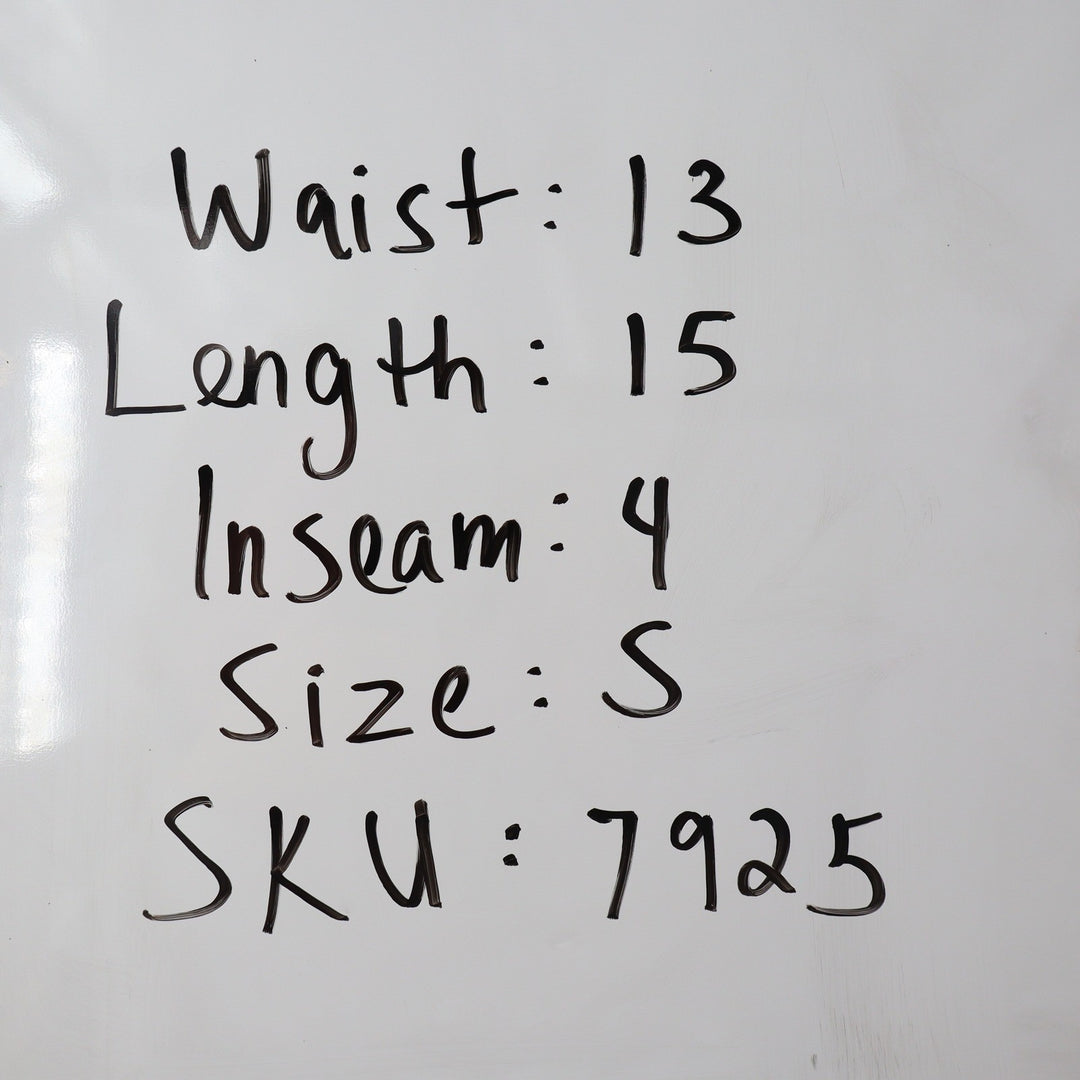 Waist: 13
Length: 15
Inseam: 4
Size: S
SKU: 7925